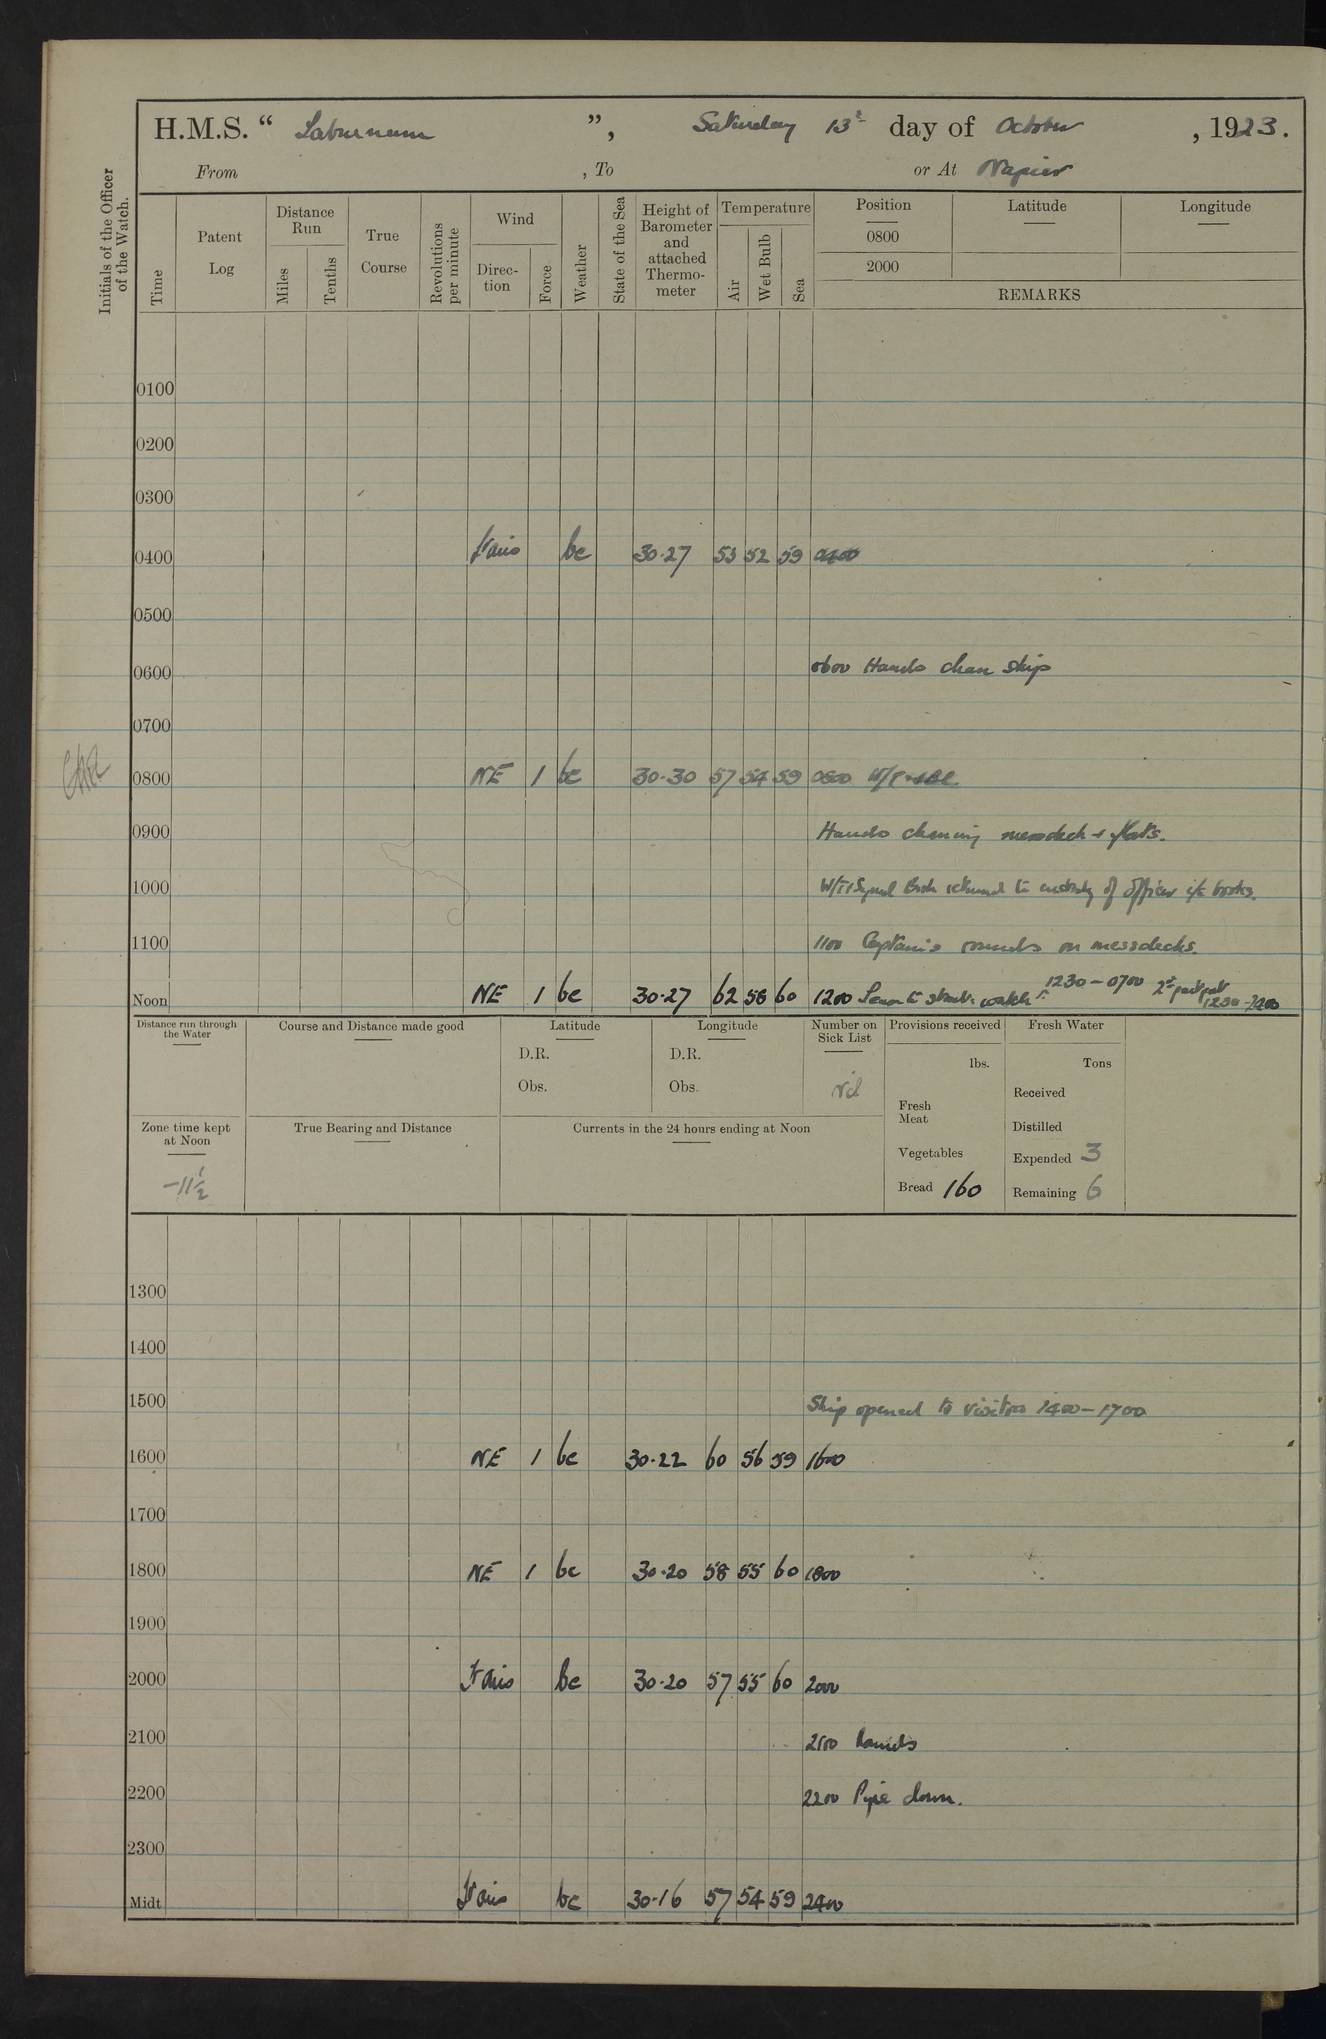 H.M.S. " Laburnum ", Saturday 13th day of October, 1923.
From , To or At Napier
Initials of the Officer of the Watch.
Time
Patent Log
Distance Run
Miles
Tenths
True Course
Revolutions per minute
Wind
Direc-tion
Force
Weather
State of the Sea
Height of Barometer and attached Thermo-meter
Temperature
Air
Wet Bulb
Sea
Position
0800
2000
Latitude
Longitude
REMARKS
0100
0200
0300
0400 bc 30·27 53 52 59 0400
0500
0600 0600 Hands clean ship
0700
0800 NE 1 bc 30·30 57 54 59 0800
0900 Hands cleaning messdeck + flats.
1000 W/T + Signal Books returned to custody of Officer i/c books.
1100 1100 Captain's rounds on messdecks.
Noon NE 1 bc 30·27 62 58 60 1200 Leave to watch 1230 – 0700 2nd part 1230 –
Distance run through the Water
Course and Distance made good
Latitude
D.R.
Obs.
Longitude
D.R.
Obs.
Number on Sick List
Nil
Provisions received
lbs.
Fresh Meat
Vegetables
Bread 160
Fresh Water
Tons
Received
Distilled
Expended 3
Remaining 6
Zone time kept at Noon
-11½
True Bearing and Distance
Currents in the 24 hours ending at Noon
1300
1400
1500 Ship opened to visitors 1400 – 1700
1600 NE 1 bc 30·22 60 56 59 1600
1700
1800 NE 1 bc 30·20 58 55 60 1800
1900
2000 bc 30·20 57 55 60 2000
2100 2100 Rounds
2200 2200 Pipe down.
2300
Midt bc 30·16 57 54 59 2400